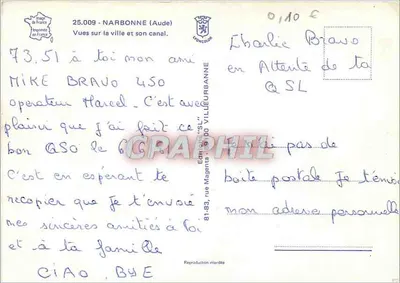 25.009 - NARBONNE (Aude)
Vues sur la ville et son canal.
73.51 à toi mon ami
MIKE BRAVO 450
operateur Marcel. C'est avec
plaisir que j'ai fait ce
bon QSO le
C'est en espérant te
recopier que Je t'envoie
mes sincères amitiés à toi
et à ta famille
CIAO. BYE
0,10 €
Charlie Bravo
en Attente de ta
QSL
pas de
boite postale Je
mon adresse personnelle
81-83, rue Magenta - 69100 VILLEURBANNE
Reproduction interdite
GRAPHIL